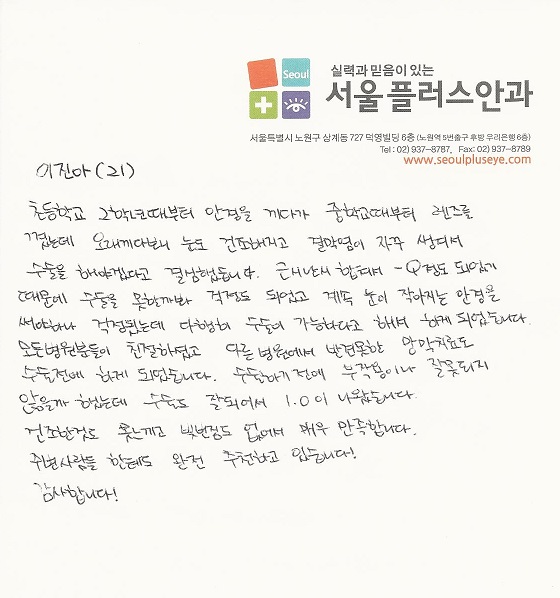 Seoul
실력과 믿음이 있는
서울플러스안과
서울특별시 노원구 상계동 727 덕영빌딩 6층 (노원역 5번출구 후방 우리은행 6층)
Tel : 02) 937-8787, Fax: 02) 937-8789
www.seoulpluseye.com
이진아 (21)
초등학교 2학년때부터 안경을 끼다가 중학교때부터 렌즈를
꼈는데 오래끼다보니 눈도 건조해지고 결막염이 자꾸 생겨서
수술을 해야겠다고 결심했습니다. 근시난시 합쳐서 -9정도 되었기
때문에 수술을 못할까봐 걱정도 되었고 계속 눈이 작아지는 안경을
써야하나 걱정됬는데 다행히 수술이 가능하다고 해서 하게 되었습니다.
모든병원분들이 친절하셨고 다른 병원에서 발견못한 망막치료도
수술전에 하게 되었습니다. 수술하기전에 부작용이나 잘못되지
않을까 했는데 수술도 잘되어서 1.0이 나왔습니다.
건조한것도 못느끼고 빛번짐도 없어서 매우 만족합니다.
주변사람들 한테도 완전 추천하고 있습니다!
감사합니다!